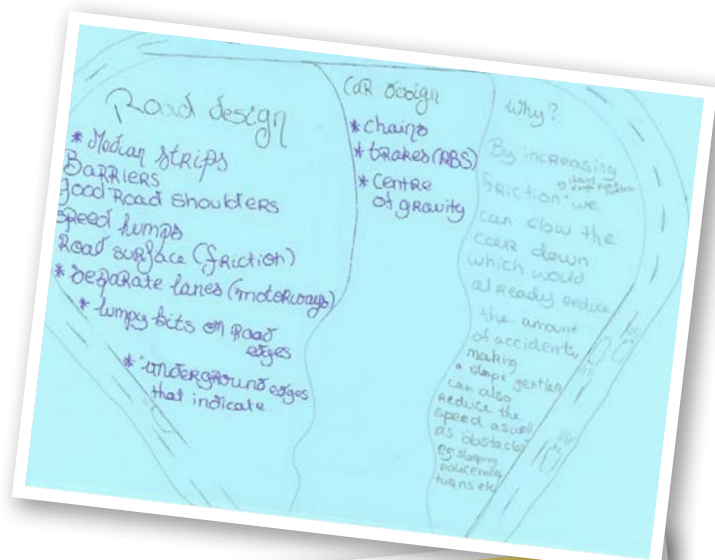 Road design
* Median strips
Barriers
good Road shoulders
speed humps
Road surface (friction)
* separate lanes (motorways)
* lumpy bits on Road
edges
* underground edges
that indicate
Car design
* chains
* brakes (ABS)
* Centre
of gravity
Why?
By increasing
friction we
can slow the
car down
which would
already reduce
the amount
of accidents,
making
a slope gentler
can also
reduce the
speed aswell
as obstacles
eg sleeping
policemen,
turns etc